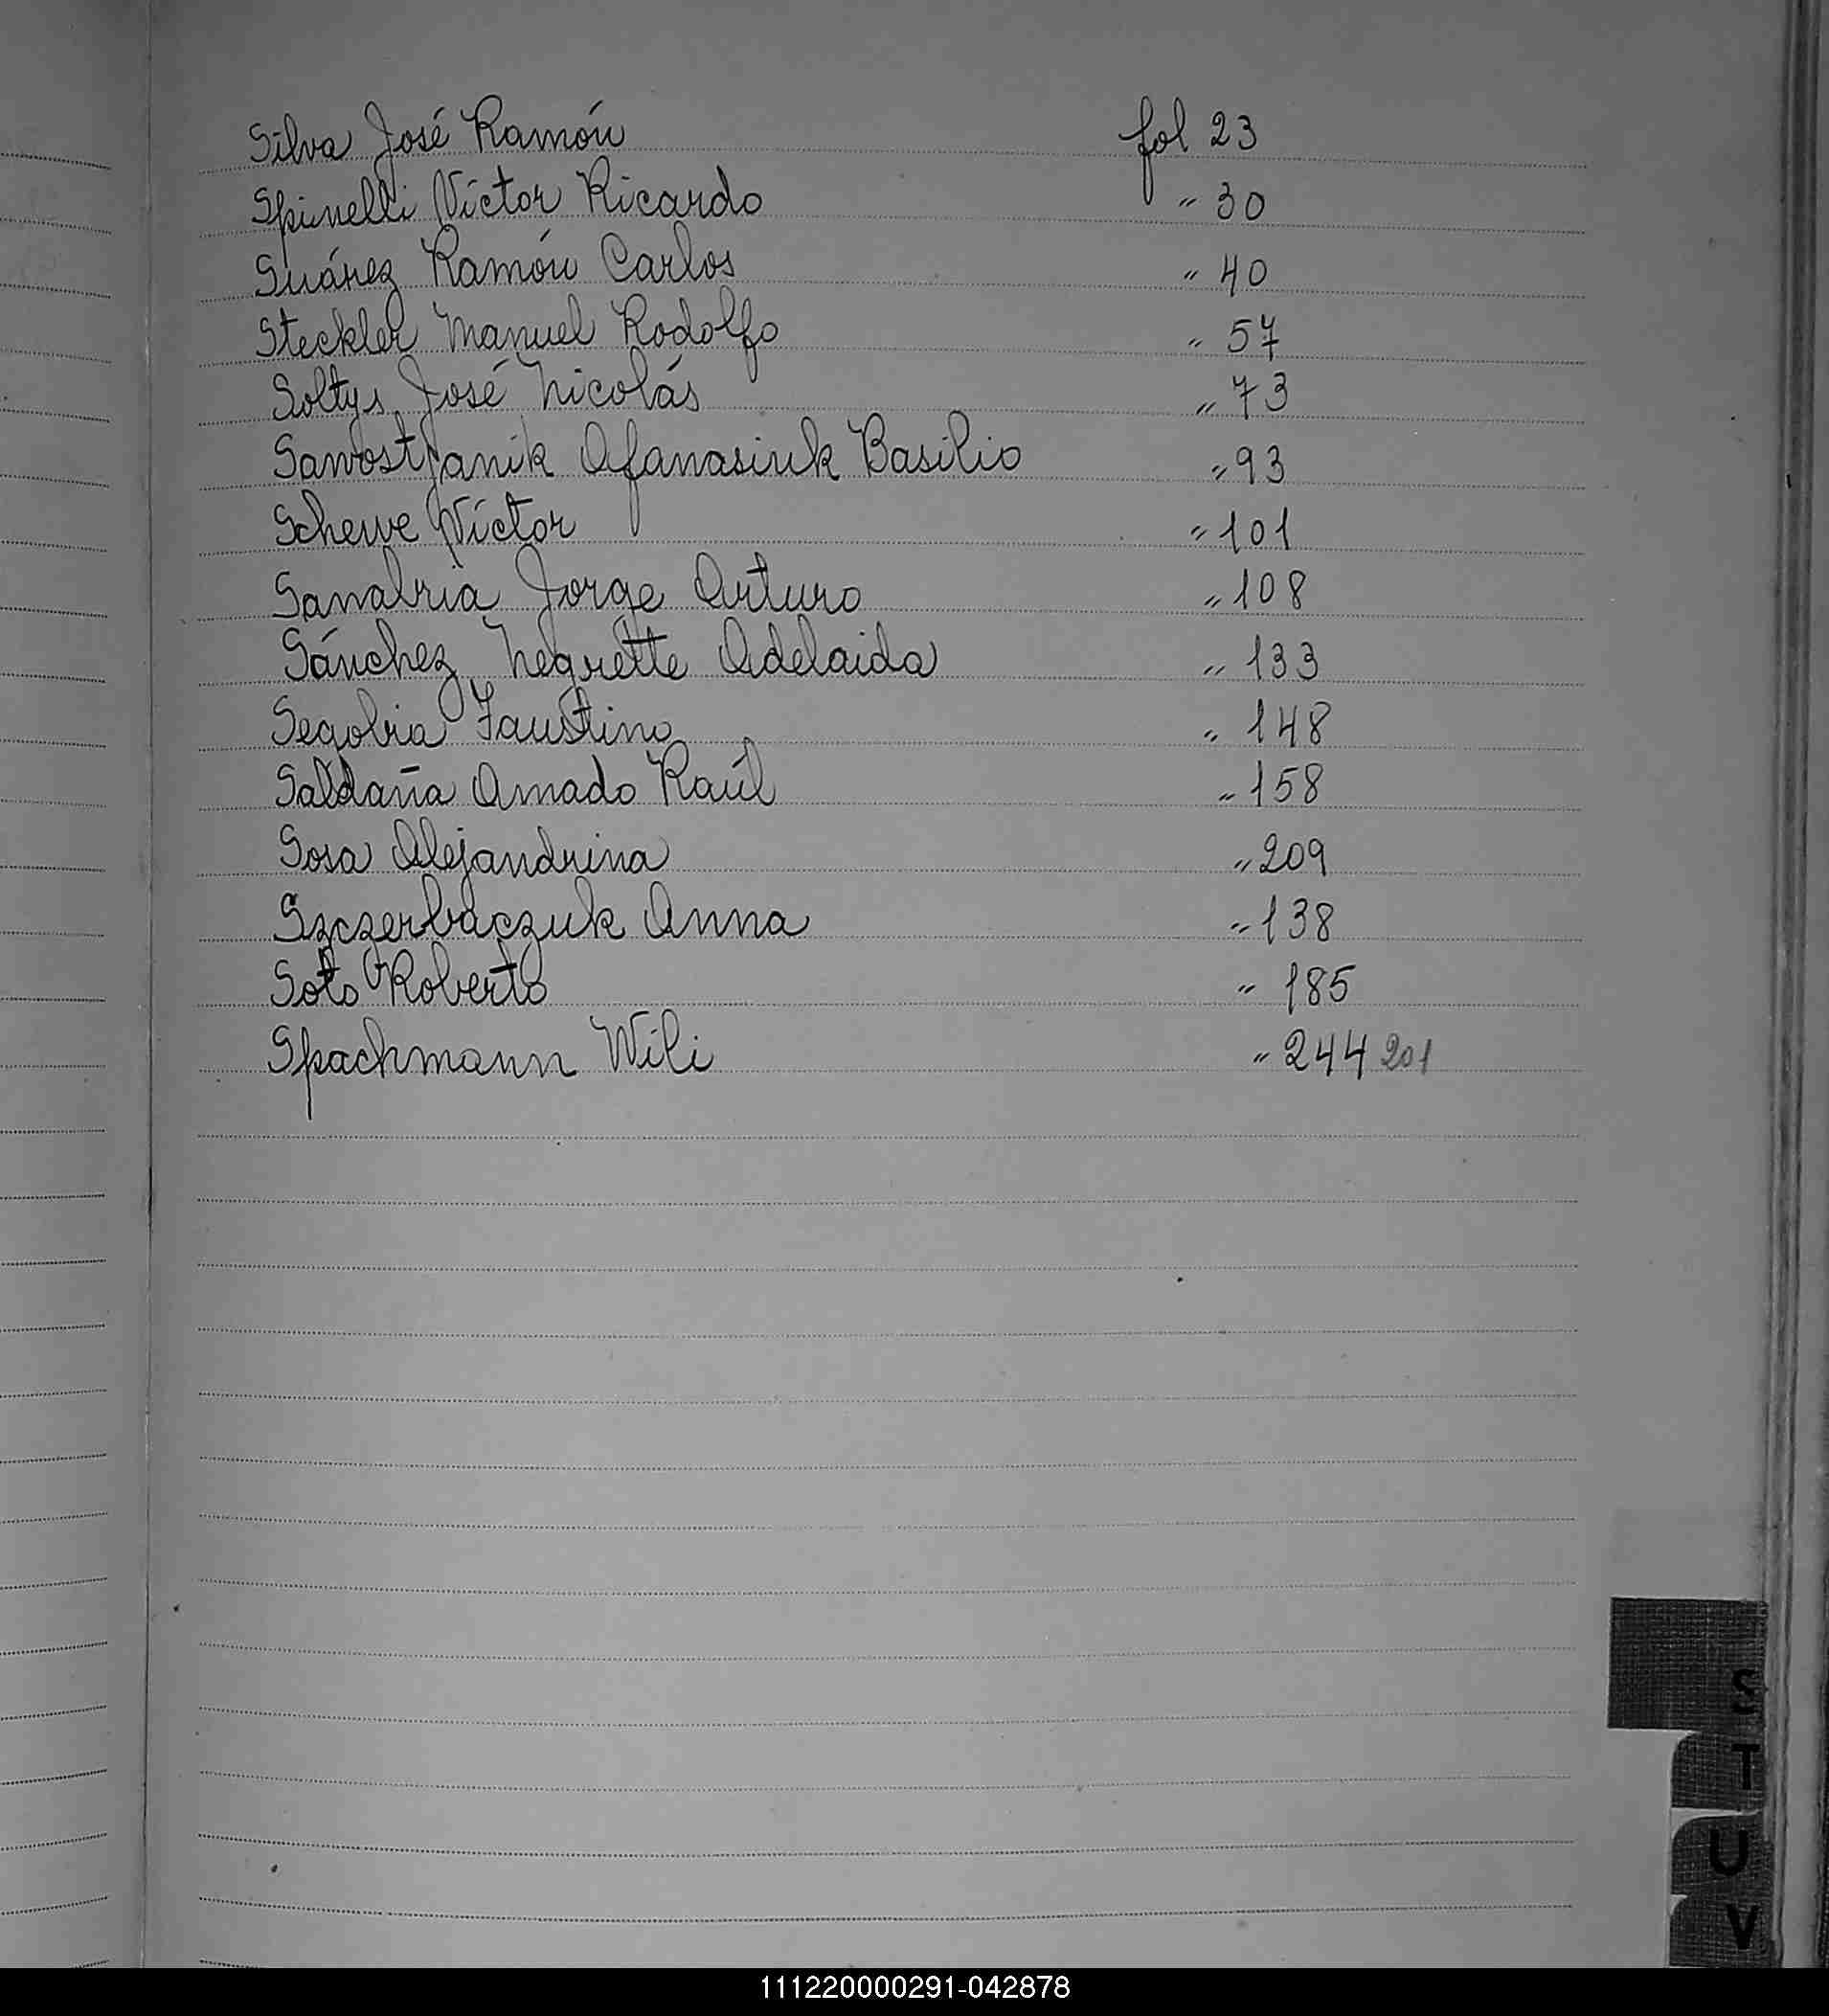 Silva José Ramón fol 23
Spinelli Víctor Ricardo " 30
Suárez Ramón Carlos " 40
Steckler Manuel Rodolfo " 57
Soltys José Nicolás " 73
Sawostjanik Afanasiuk Basilio " 93
Schewe Víctor " 101
Sanabria Jorge Arturo " 108
Sánchez Negrette Adelaida " 133
Segobia Faustino " 148
Saldaña Amado Raúl " 158
Sosa Alejandrina " 209
Szczerbaczuk Anna " 138
Soto Roberto " 185
Spachmann Wili " 244 201
S
T
U
V
111220000291-042878